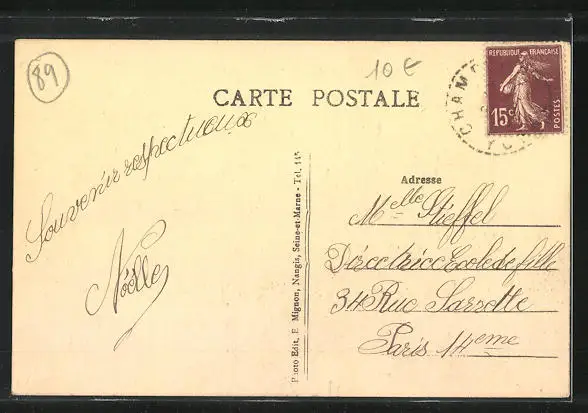 89
10 €
RÉPUBLIQUE FRANÇAISE
15c
POSTES
CHAMP
YO
CARTE POSTALE
Souvenir respectueux
Noëlle
Photo Edit, E Mignon, Nangis, Seine-et-Marne - Tél. 145
Adresse
Melle Stieffel
Directrice Ecole de fille
34 Rue Sarrette
Paris 14eme